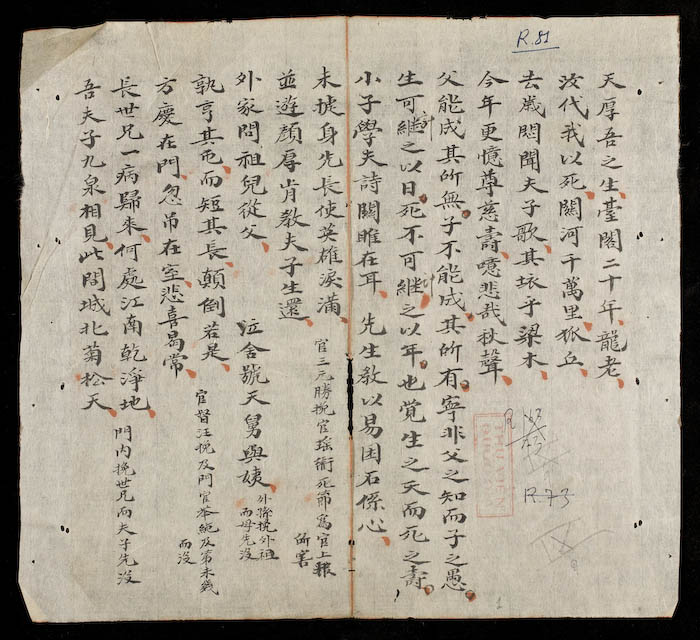 R.81
天厚吾之生臺閣二十年龍老
汝代我以死關河千萬里狐丘
去歲聞夫子歌其乎梁木
今年更憶尊慈壽噫悲哉秋聲
父能成其所無子不能成其所有寧非父之知而子之愚
生可継之以日死不可継之以年也覚生之夭而死之壽
小子學夫詩關雎在耳 先生教以易困石係心
未身先長使英雄淚滿
官三元勝挽官瑶衛死節為官上報所害
並遊顏厚肯教夫子生還
外家問祖兒從父 泣舍號天舅與姨
外孫挽外祖而母先沒
孰亨其屯而短其長顛倒若是
官督汪挽及門官及第未幾而沒
方慶在門忽吊在室悲喜曷常
長世兄一病歸來何處江南乾淨地
門內挽世兄而夫子先沒
吾夫子九泉相見此間城北菊松天
R.73
THU VIEN
1